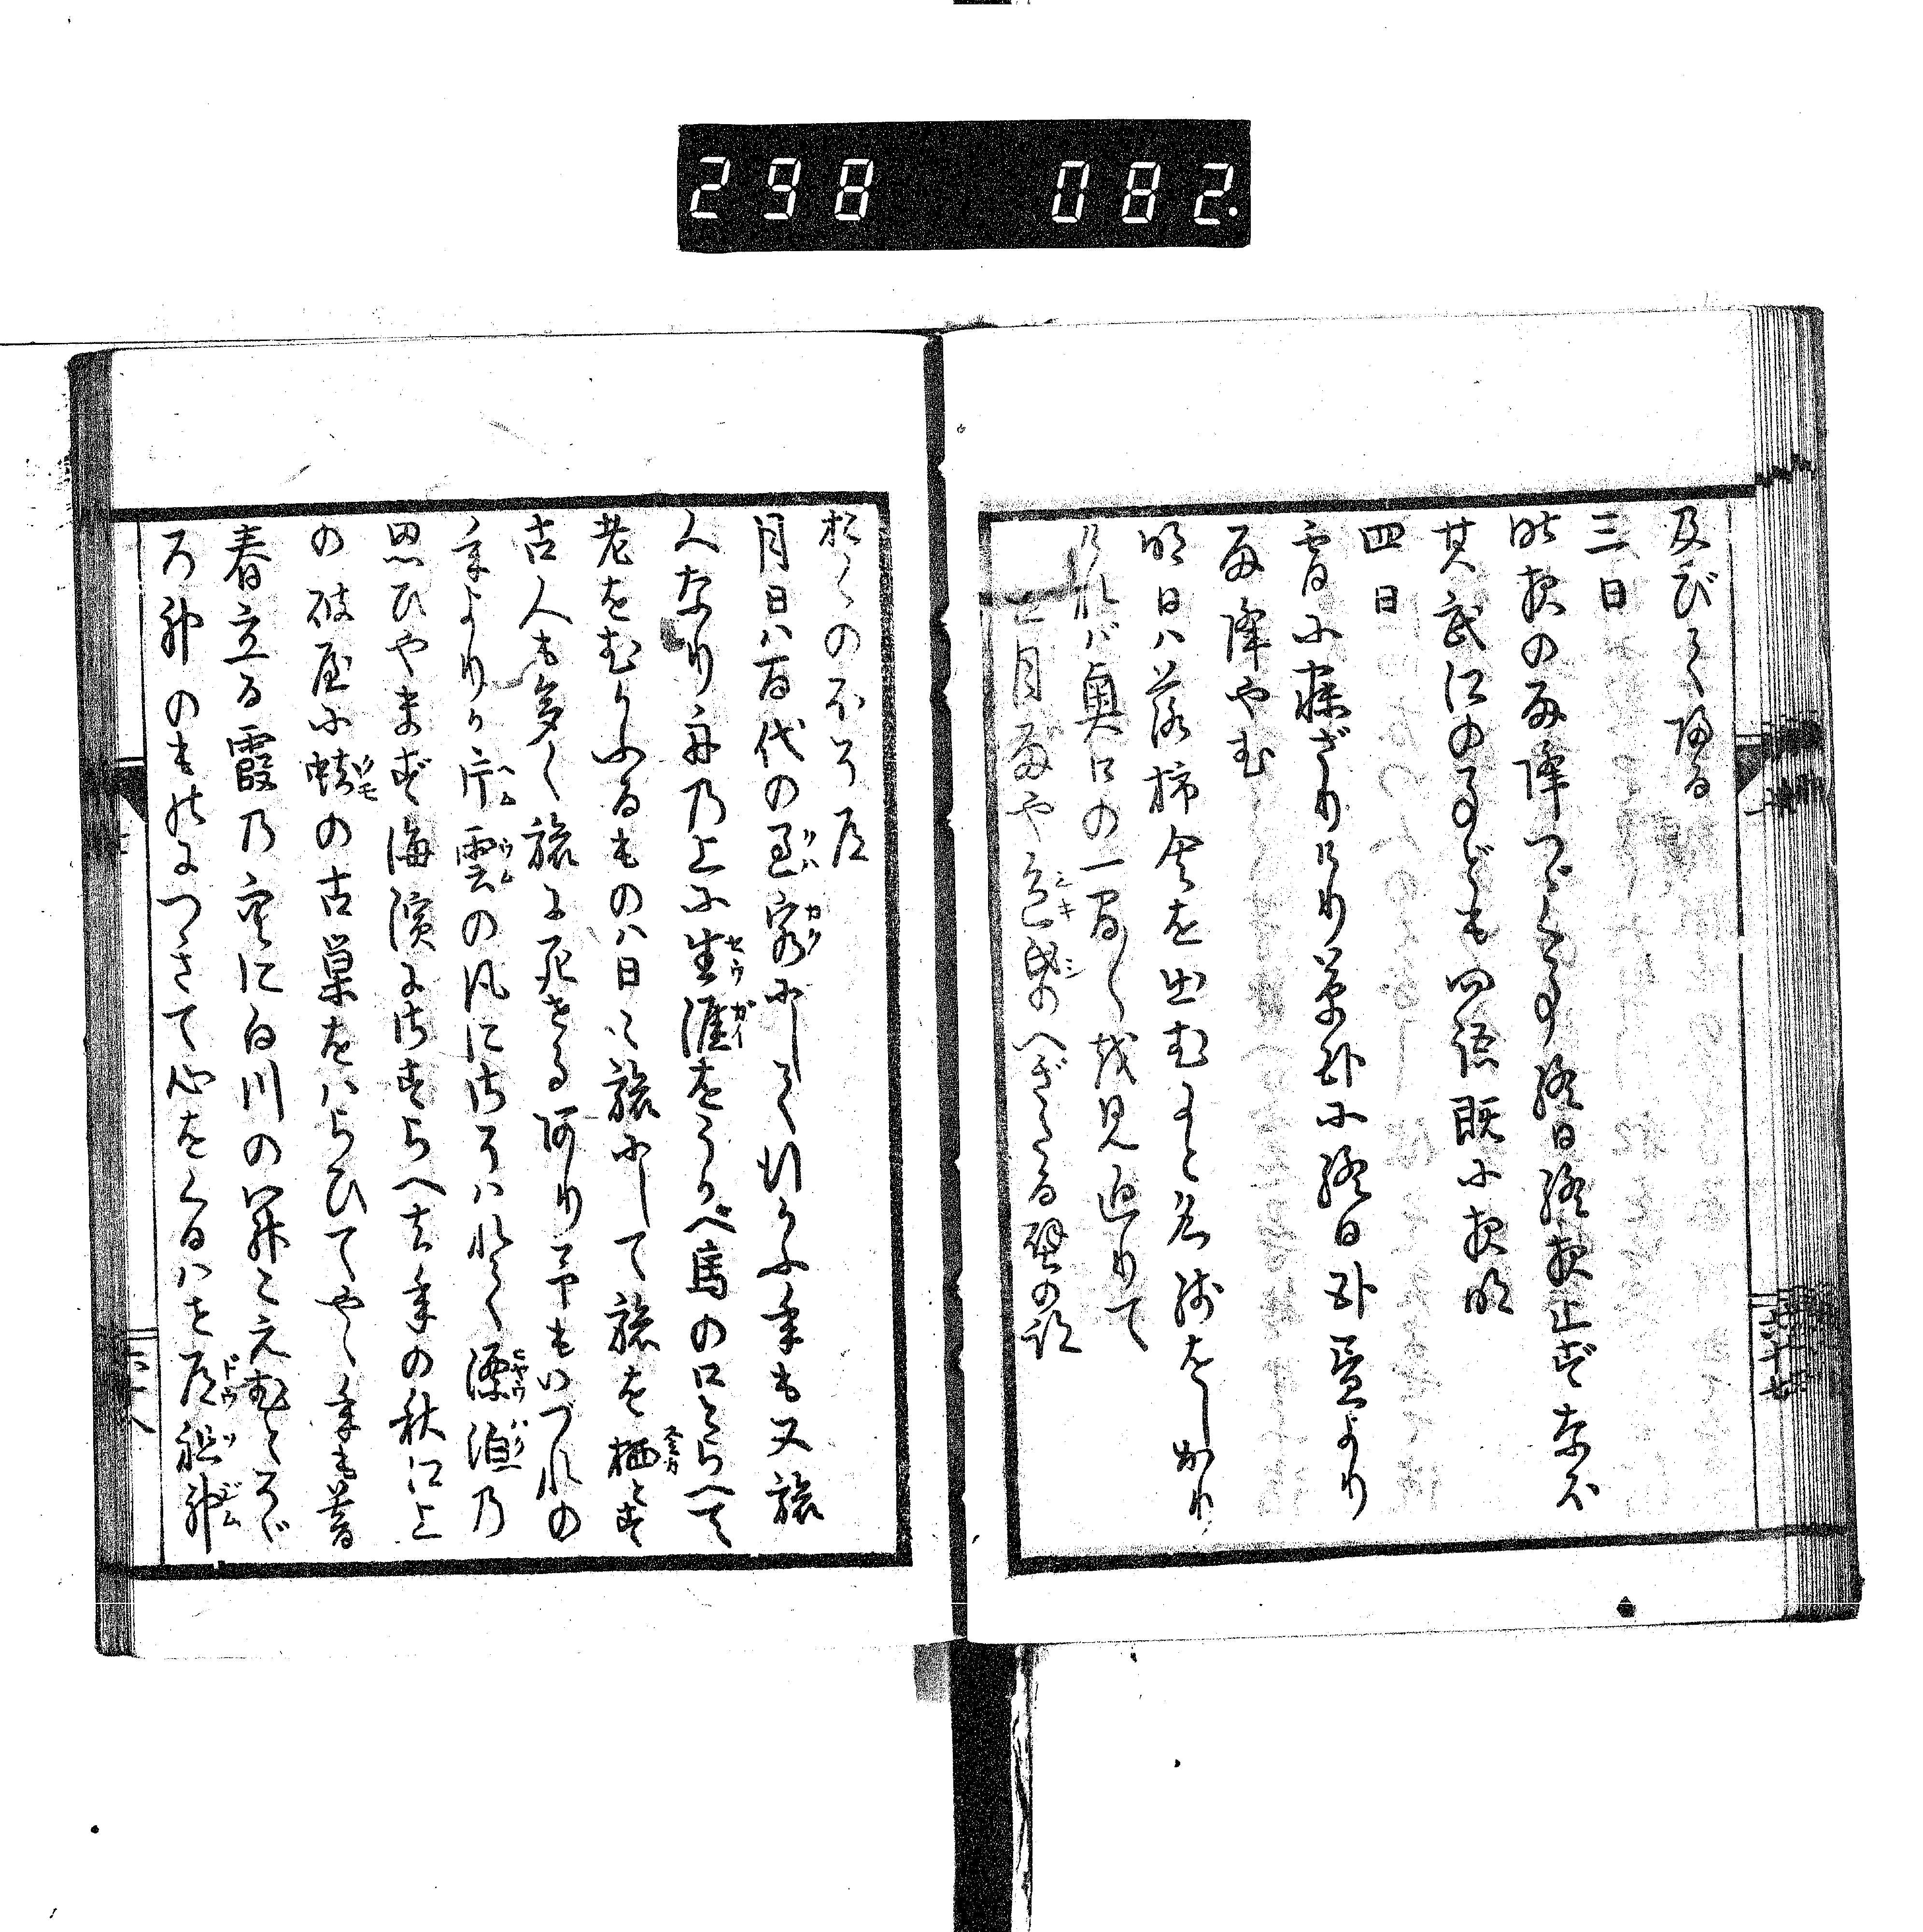 298 082.
及びて帰る
三日
昨夜の雨降つゞく事終日終夜止ずなほ
其武江の事ども問語既に夜明
四日
宵に寐ざりければ草臥に終日臥昼より
雨降やむ
明日は落柿舎を出むこと名残をしかり
ければ奥口の一間〱を見廻りて
五月雨や色紙へぎたる壁の跡
おくのほそ道
月日は百代の過客にして行かふ年も又旅
人なり舟の上に生涯をうかべ馬の口とらへて
老をむかふるものは日〻旅にして旅を栖とす
古人も多く旅に死せるあり予もいづれの
年よりか片雲の風にさそはれて漂泊の
思ひやまず海濱にさすらへ去年の秋江上
の破屋に蜘の古巣をはらひてやゝ年も暮
春立る霞の空に白川の関こえむとそゞ
ろ神のものにつきて心をくるはせ道祖神